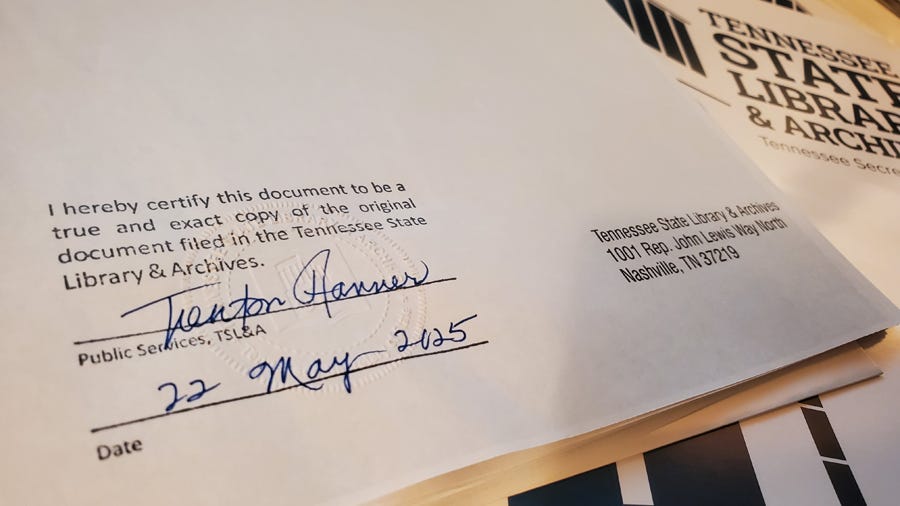 I hereby certify this document to be a
true and exact copy of the original
document filed in the Tennessee State
Library & Archives.
Trenton Hanner
Public Services, TSL&A
22 May 2025
Date
Tennessee State Library & Archives
1001 Rep. John Lewis Way North
Nashville, TN 37219
TENNESSEE
STATE
LIBRAR
& ARCHI
Tennessee Secre